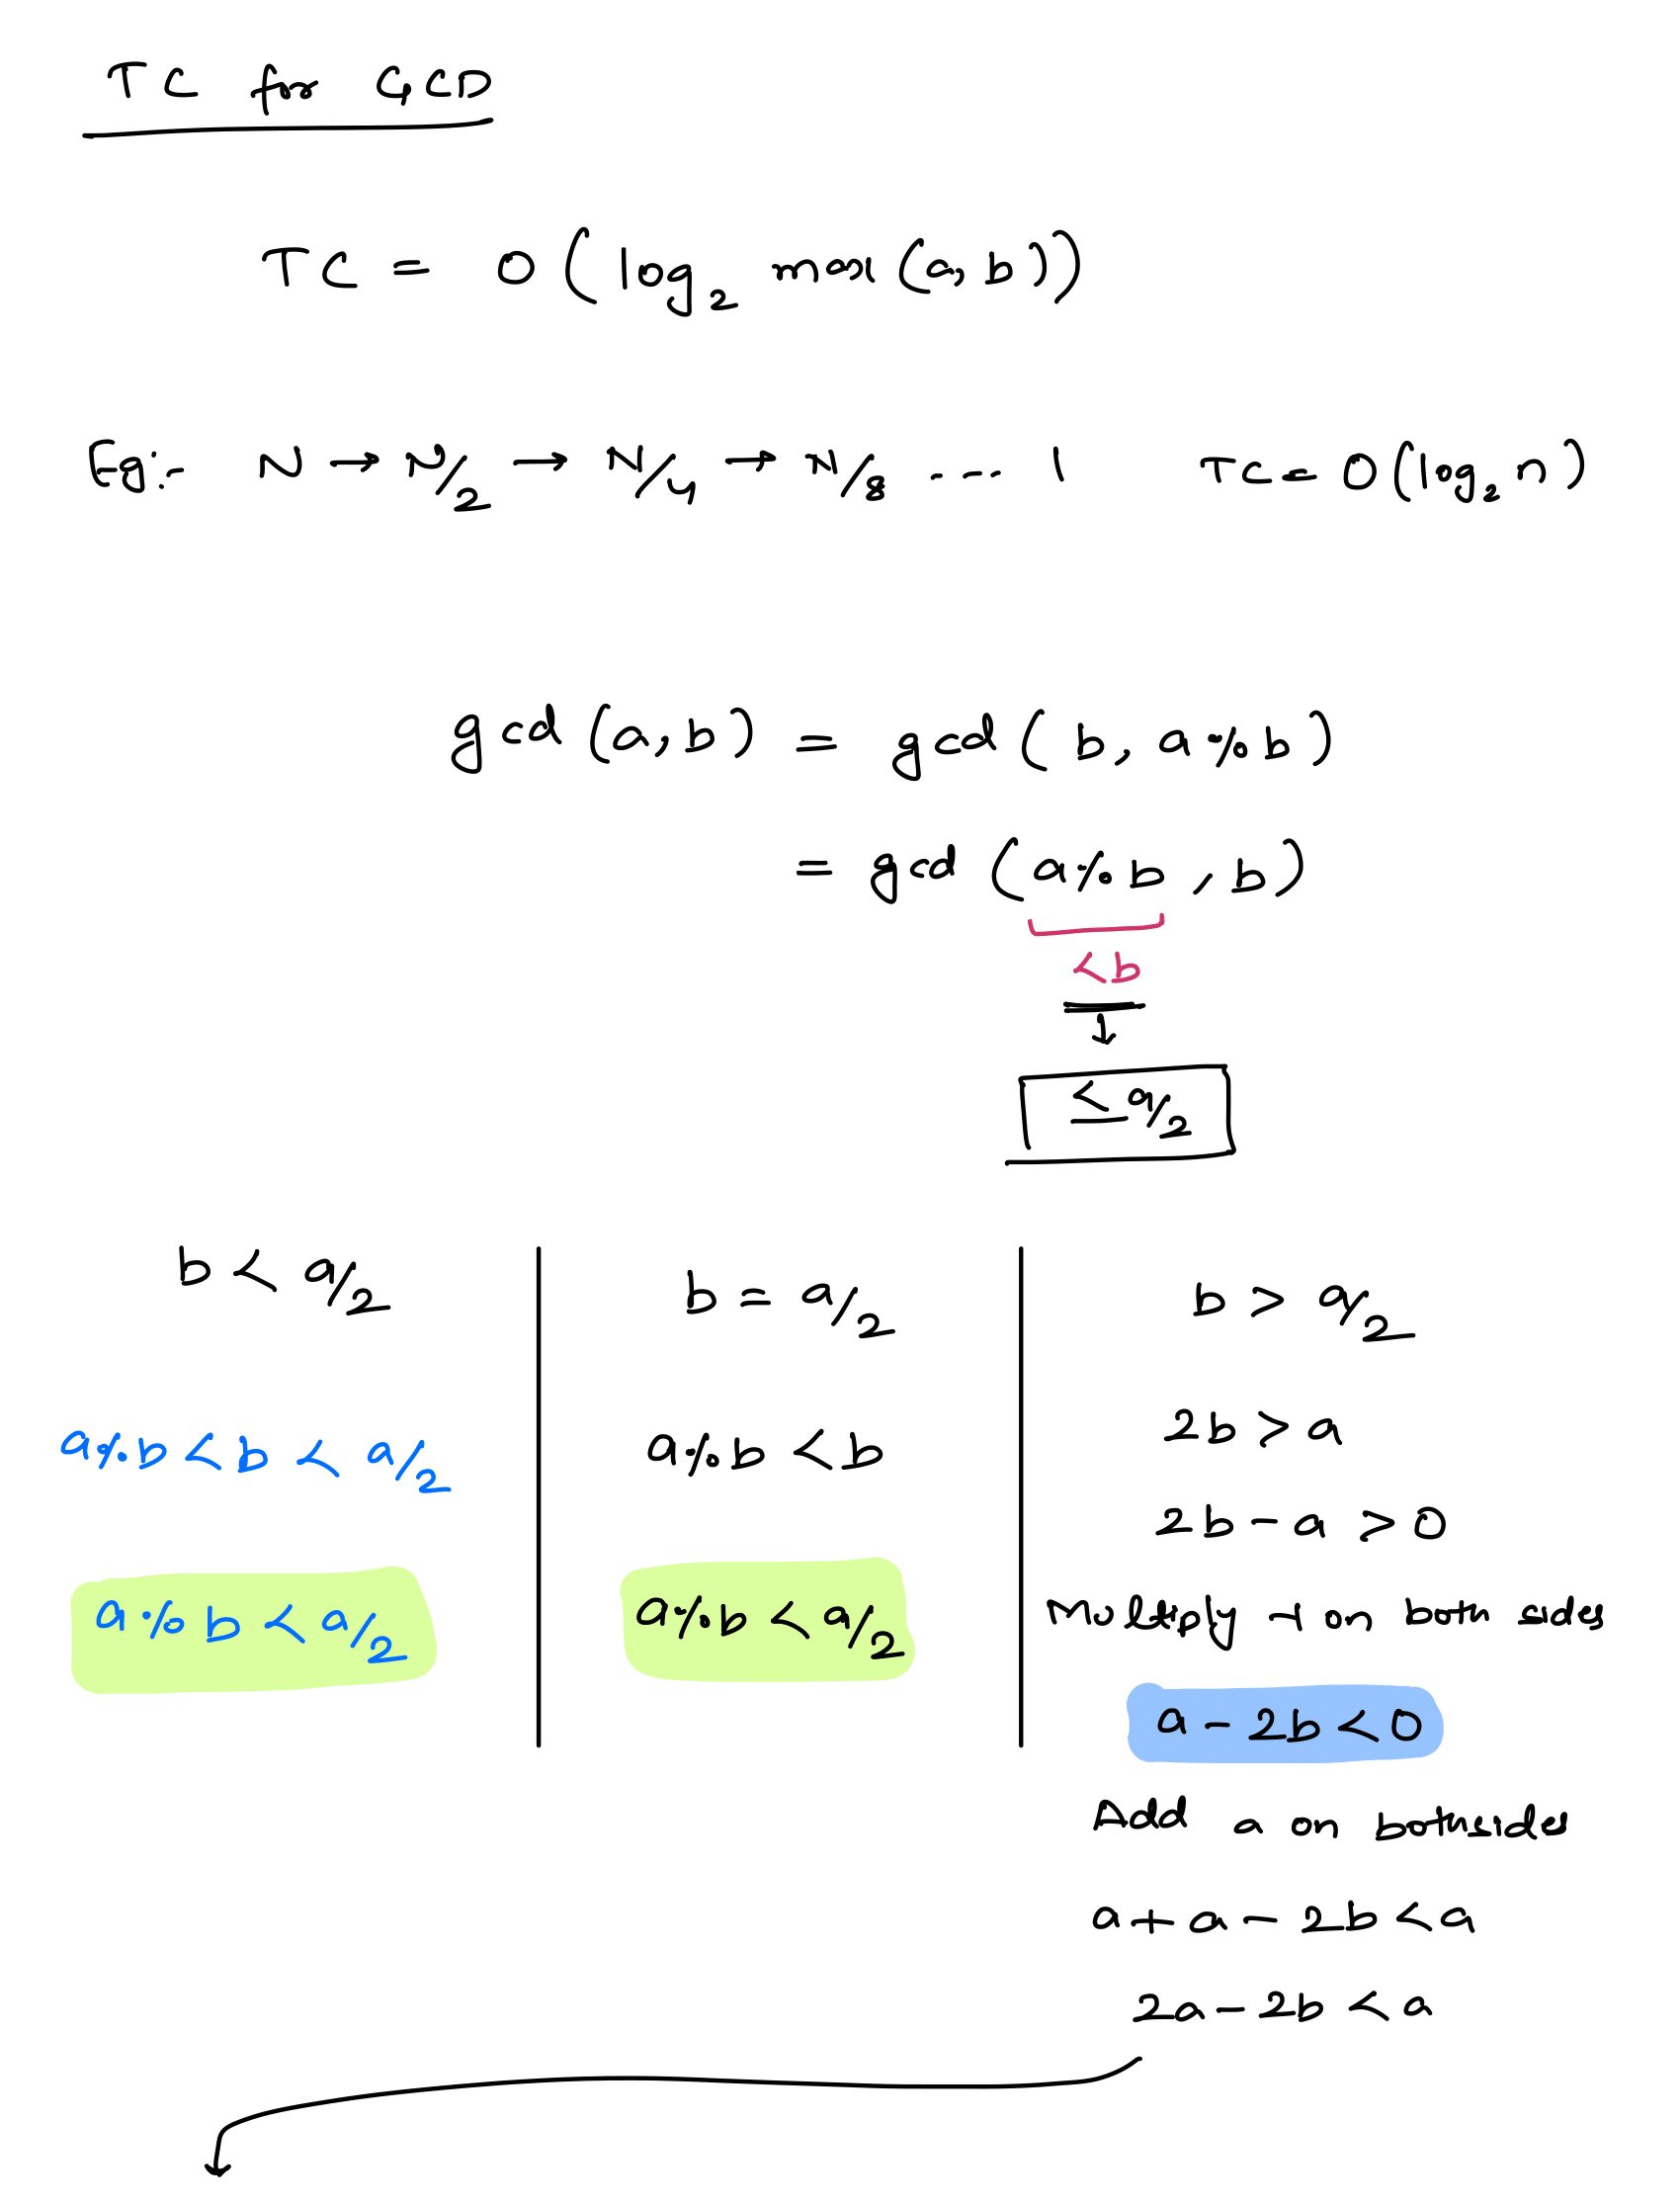 TC for GCD
TC = O(log₂ max(a,b))
Eg:- N → N/2 → N/4 → N/8 .... 1 TC = O(log₂ n)
gcd(a,b) = gcd(b, a%b)
= gcd(a%b, b)
<b
≤ a/2
b < a/2
a%b < b < a/2
a%b < a/2
b = a/2
a%b < b
a%b < a/2
b > a/2
2b > a
2b - a > 0
Multiply -1 on both sides
a - 2b < 0
Add a on bothsides
a + a - 2b < a
2a - 2b < a